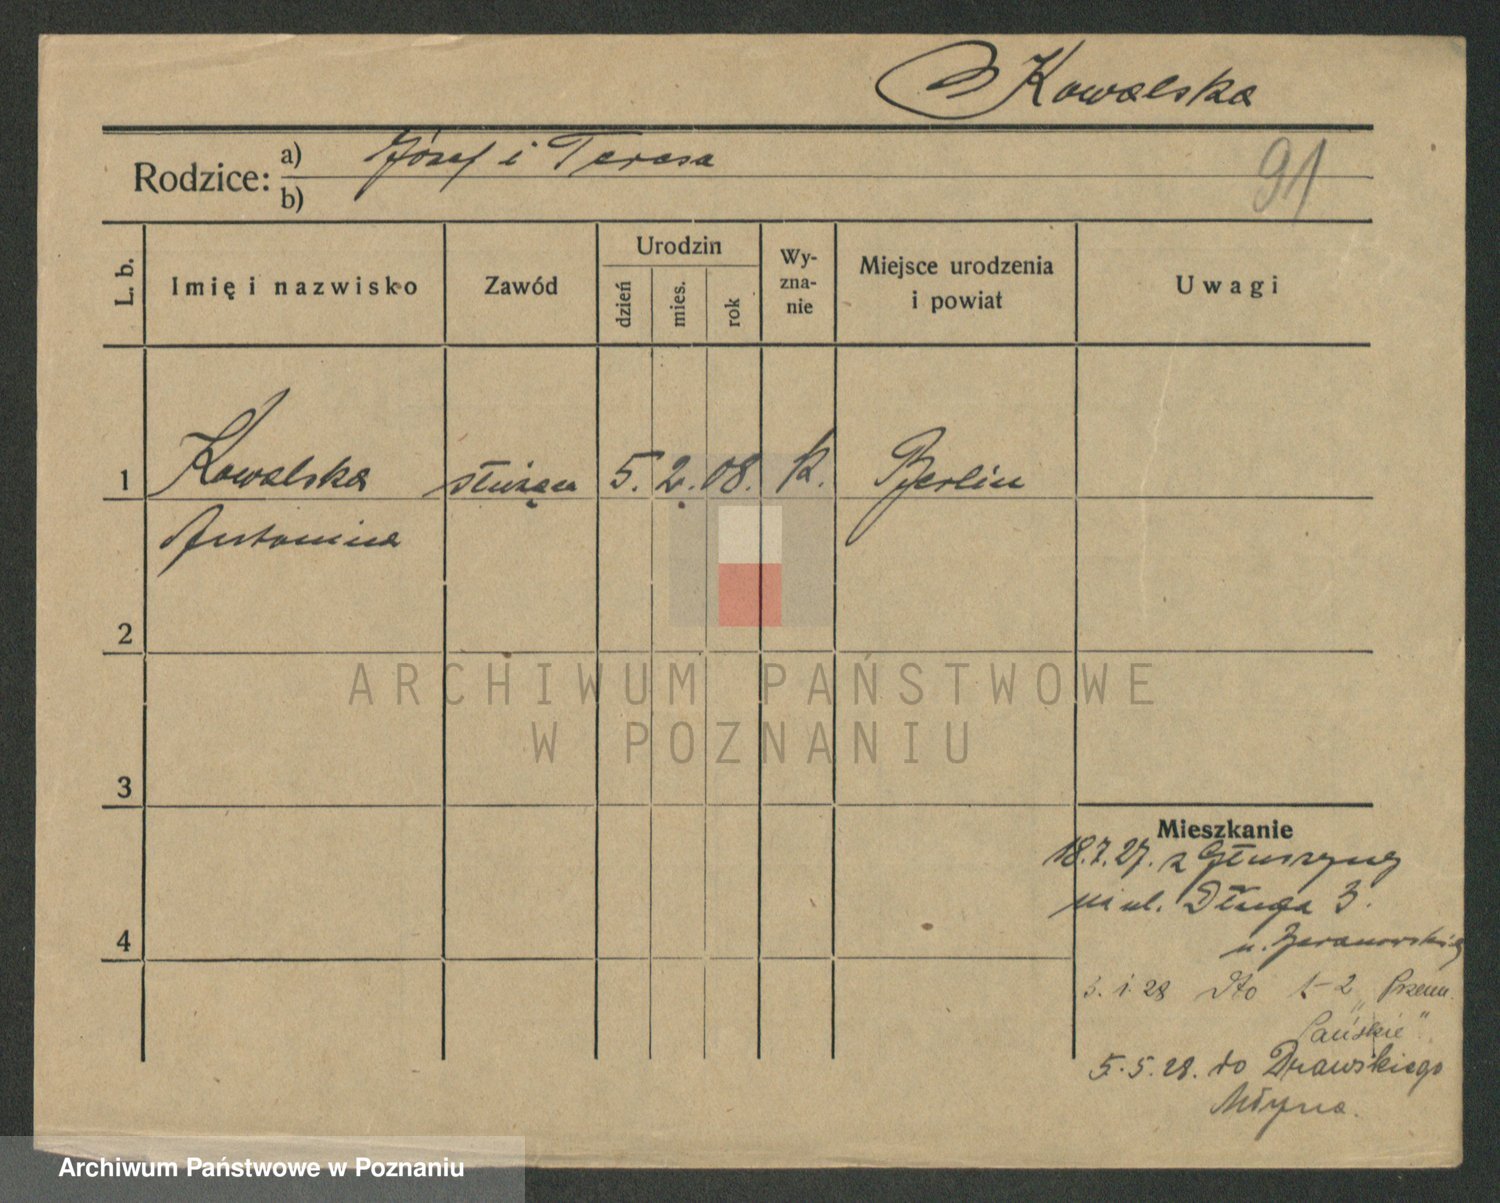 Kowalska
Rodzice: a) Józef i Teresa
b)
91
L. b. Imię i nazwisko Zawód Urodzin dzień mies. rok Wyznanie Miejsce urodzenia i powiat Uwagi
1 Kowalska służąca 5. 2. 08. k. Berlin
Antonina
2
3
4
Mieszkanie
18.7.27. z Głuszyny
ul. Długa 3.
u.
3. 1. 28 dto 1-2 „Przem.
Pańskie”
5.5.28. do Drawskiego
Młyna.
ARCHIWUM PAŃSTWOWE
W POZNANIU
Archiwum Państwowe w Poznaniu